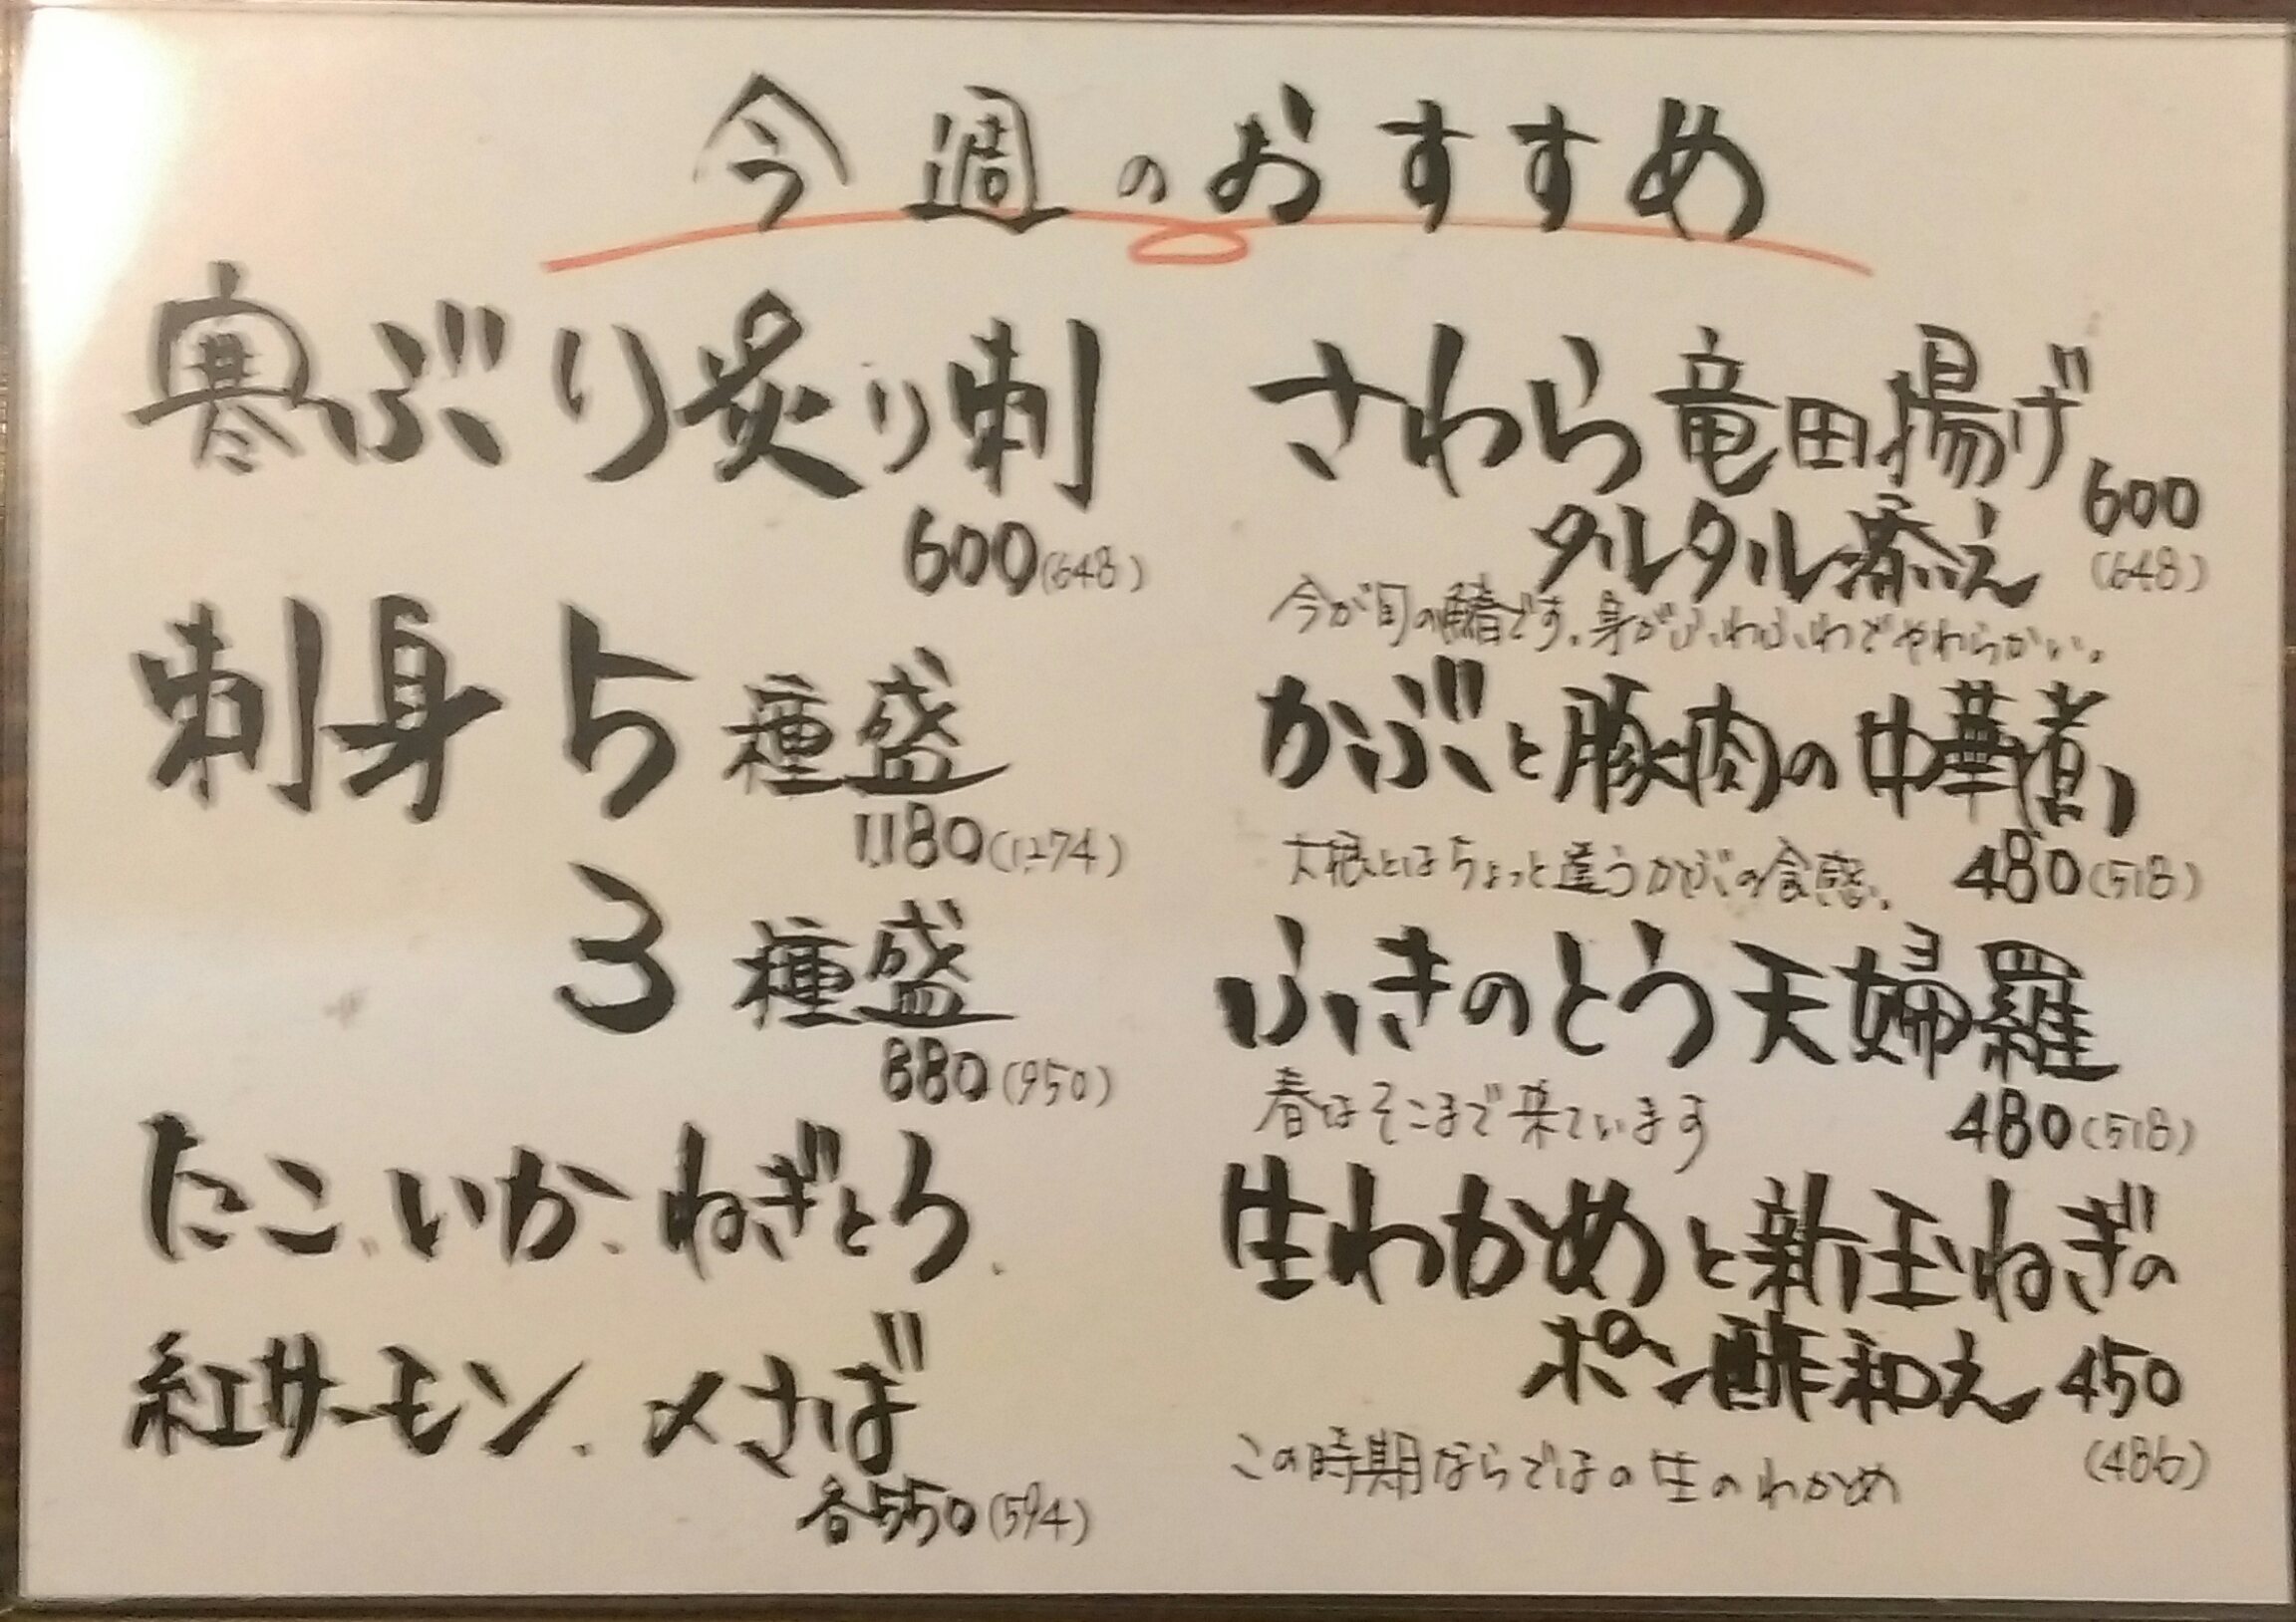 今週のおすすめ
寒ぶり炙り刺
600(648)
刺身5種盛
1,180(1,274)
3種盛
880(950)
たこ、いか、ねぎとろ、
紅サーモン、〆さば
各550(594)
さわら竜田揚げ
タルタル添え
600
(648)
今が旬の鰆です。身がふわふわでやわらかい。
かぶと豚肉の中華煮
大根とはちょっと違うかぶの食感。 480(518)
ふきのとう天婦羅
春はそこまで来ています 480(518)
生わかめと新玉ねぎの
ポン酢和え 450
(486)
この時期ならではの生のわかめ